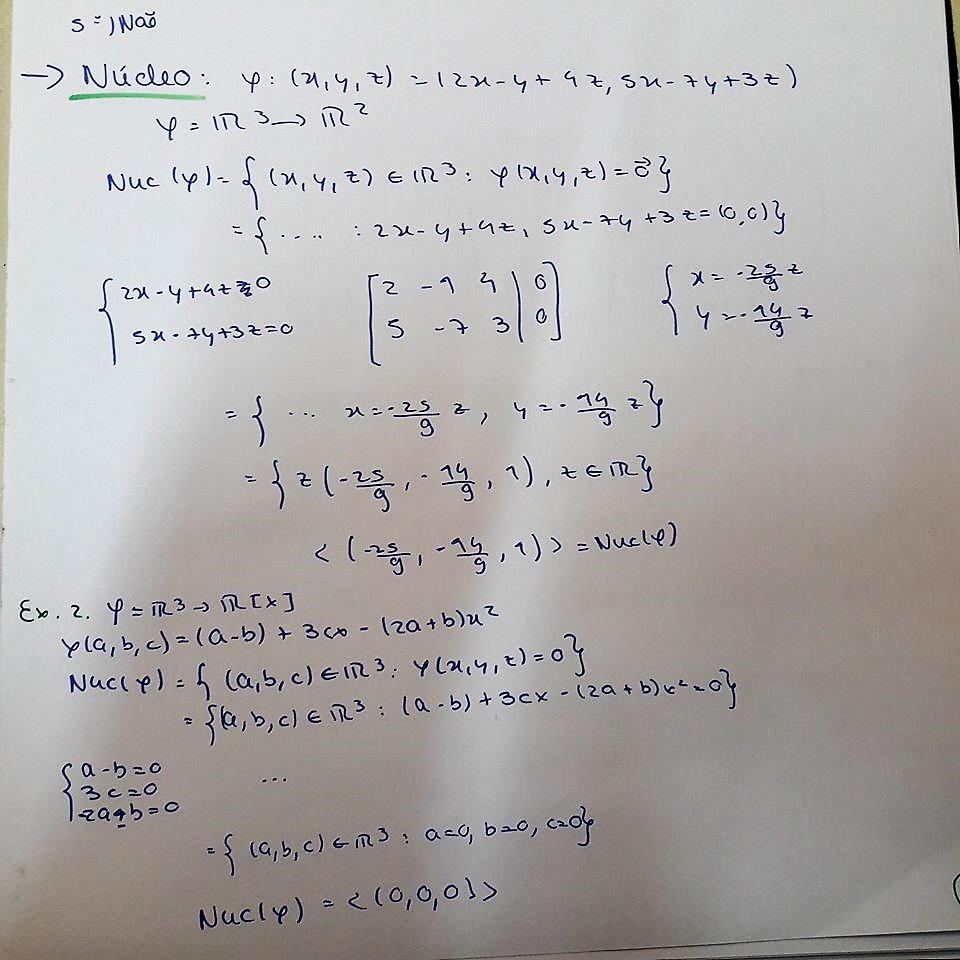 S = ) Não
→ Núcleo: φ: (x, y, z) = (2x - y + 4z, 5x - 7y + 3z)
φ = ℝ³ → ℝ²
Nuc (φ) = { (x, y, z) ∈ ℝ³ : φ(x, y, z) = 0⃗ }
= { .... : 2x - y + 4z, 5x - 7y + 3z = (0,0) }
{ 2x - y + 4z = 0 [ 2 -1 4 | 0 ] { x = -25/9 z
5x - 7y + 3z = 0 [ 5 -7 3 | 0 ] y = -14/9 z
= { ... x = -25/9 z, y = -14/9 z }
= { z (-25/9, -14/9, 1), z ∈ ℝ }
< (-25/9, -14/9, 1) > = Nuc(φ)
Ex. 2. φ = ℝ³ → ℝ[x]
φ(a, b, c) = (a-b) + 3cx - (2a+b)x²
Nuc(φ) = { (a, b, c) ∈ ℝ³ : φ(x, y, z) = 0 }
= { (a, b, c) ∈ ℝ³ : (a-b) + 3cx - (2a+b)x² = 0 }
{ a - b = 0 ...
3c = 0
2a + b = 0
= { (a, b, c) ∈ ℝ³ : a=0, b=0, c=0 }
Nuc(φ) = < (0, 0, 0) >